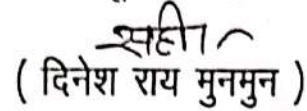 सही/
( दिनेश राय मुनमुन )